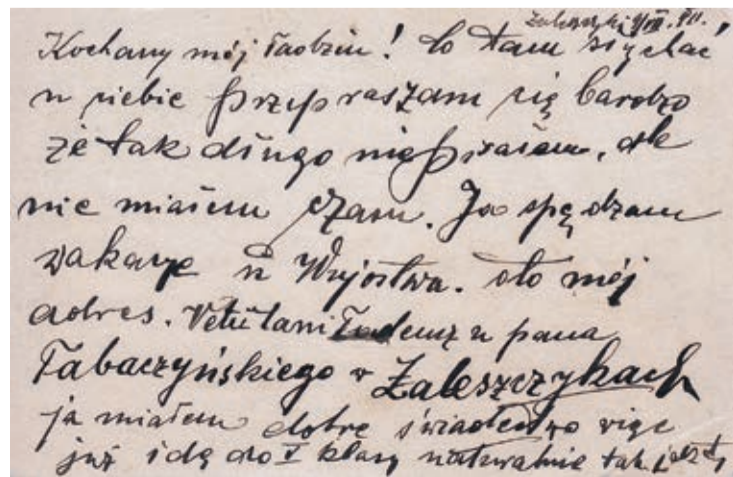 Zaleszczyki
Kochany mój Tadziu! Co tam słychać
u ciebie przepraszam cię bardzo
że tak długo nie pisałem, ale
nie miałem czasu. Ja spędzam
wakacje u Wujostwa. oto mój
adres. Vetulani Tadeusz u pana
Tabaczyńskiego w Zaleszczykach
ja miałem dobre świadectwo więc
już idę do V klasy naturalnie tak